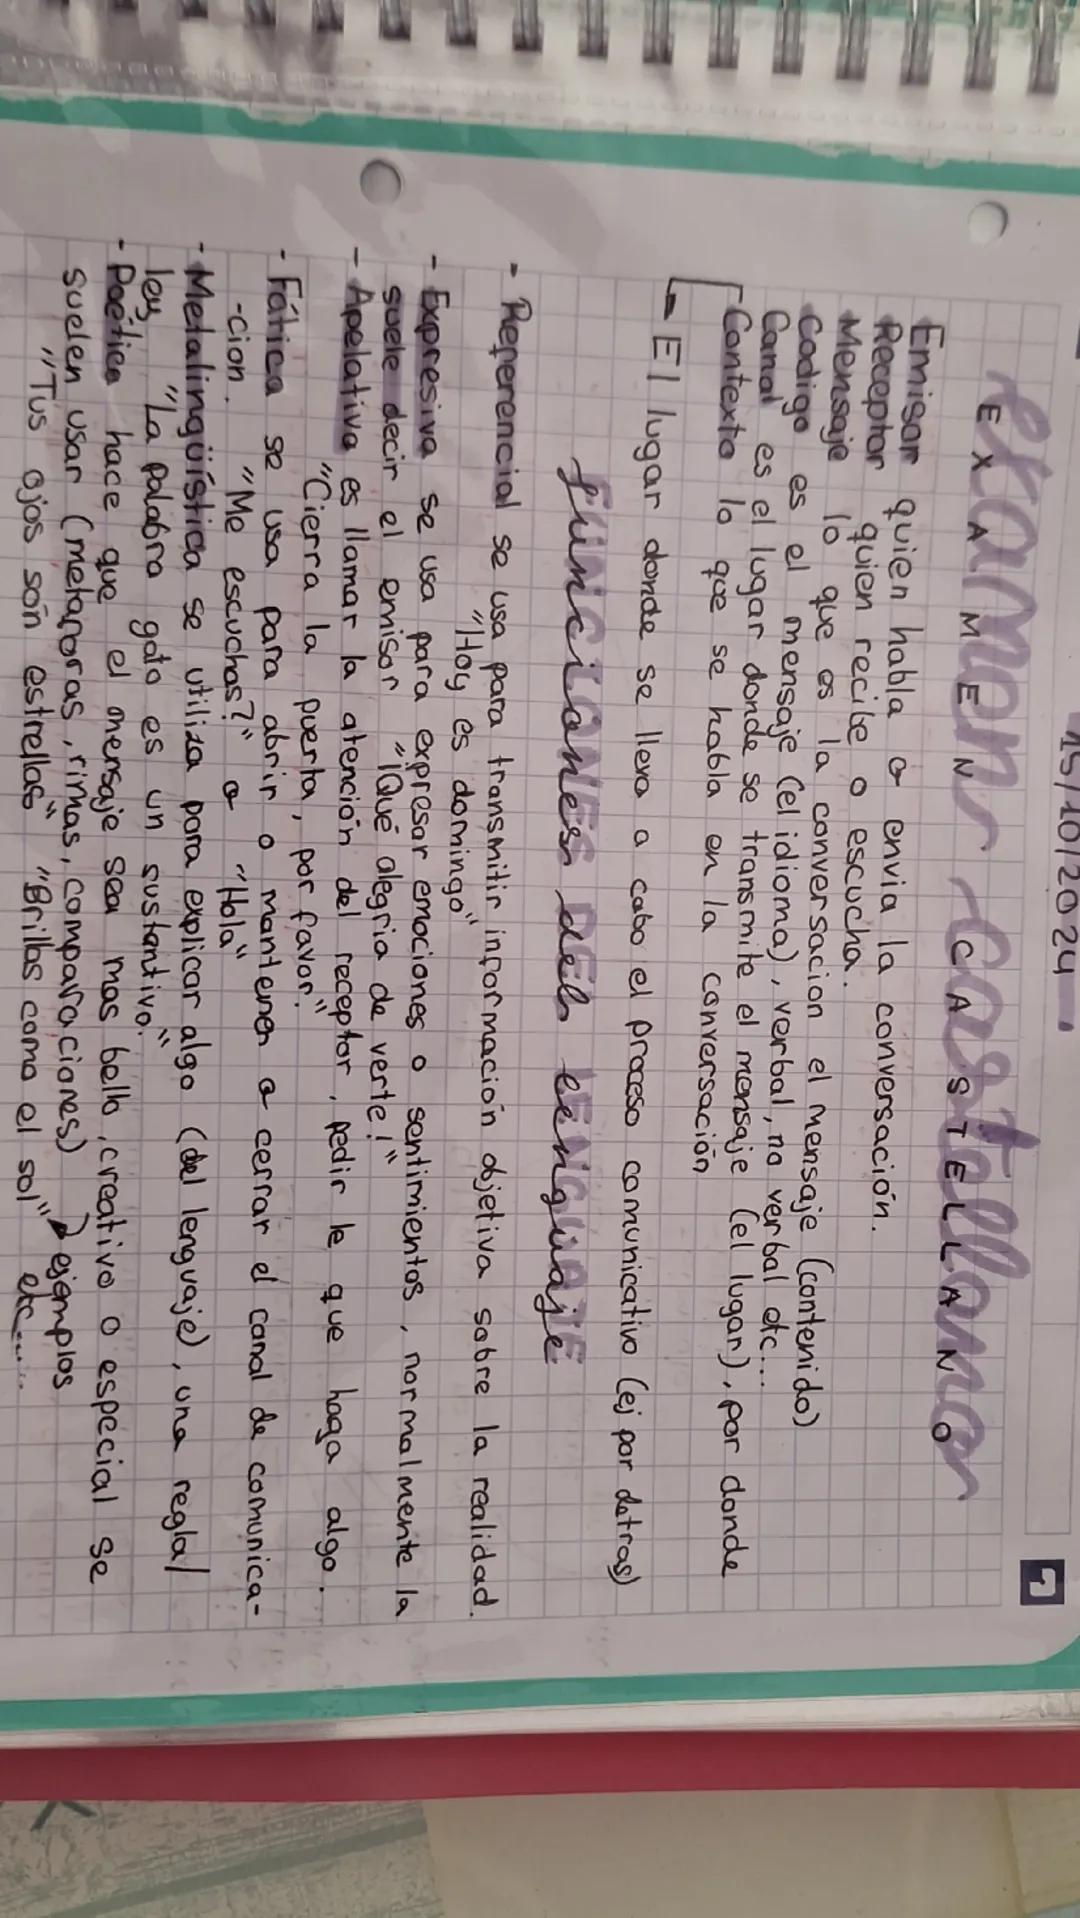 15/10/2024
examen castellano
EXAMEN CASTELLANO
Emisor quien habla o envia la conversación.
Receptor quien recibe o escucha.
Mensaje lo que es la conversacion el mensaje (contenido)
Codigo es el mensaje (el idioma), verbal, no verbal etc...
Canal es el lugar donde se transmite el mensaje (el lugar), por donde
Contexto lo que se habla en la conversación
El lugar donde se lleva a cabo el proceso comunicativo (ej por detras)
funciones del lenguaje
- Referencial se usa para transmitir información objetiva sobre la realidad.
"Hoy es domingo"
- Expresiva se usa para expresar emociones o sentimientos, normalmente la
suele decir el emisor "¡Qué alegria de verte!"
- Apelativa es llamar la atención del receptor, pedir le que haga algo.
"Cierra la puerta, por favor."
- Fática se usa para abrir o mantener o cerrar el canal de comunica-
-cion. "Me escuchas?" o "Hola"
- Metalingüística se utiliza para explicar algo (del lenguaje), una regla/
ley "La palabra gato es un sustantivo."
- Poética hace que el mensaje sea mas bello, creativo o especial se
suelen usar (metaforas, rimas, comparaciones) ejemplos
"Tus ojos son estrellas" "Brillas como el sol" etc....